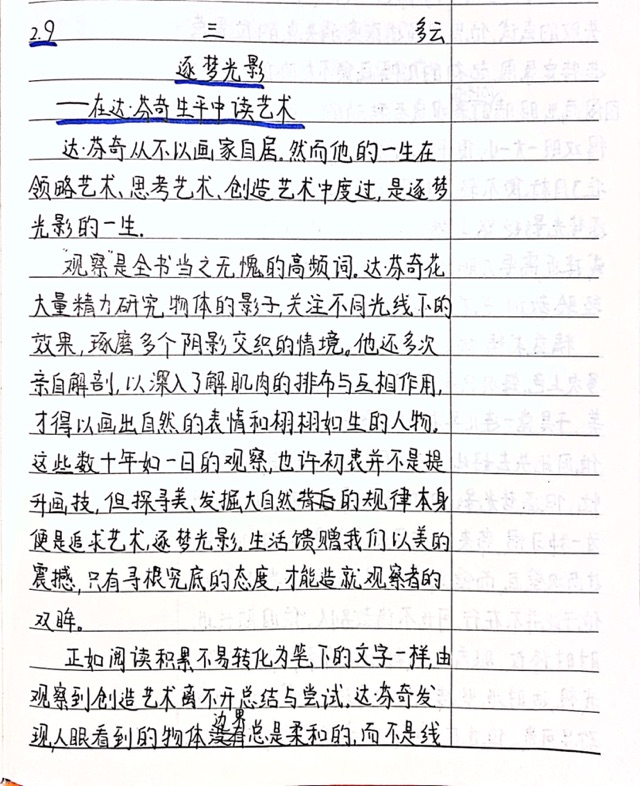 2.9 三 多云
逐梦光影
——在达·芬奇生平中读艺术
达·芬奇从不以画家自居。然而他的一生在
领略艺术、思考艺术、创造艺术中度过,是逐梦
光影的一生.
"观察"是全书当之无愧的高频词。达·芬奇花
大量精力研究物体的影子,关注不同光线下的
效果,琢磨多个阴影交织的情境。他还多次
亲自解剖,以深入了解肌肉的排布与互相作用,
才得以画出自然的表情和栩栩如生的人物。
这些数十年如一日的观察,也许初衷并不是提
升画技,但探寻美、发掘大自然背后的规律本身
便是追求艺术,逐梦光影。生活馈赠我们以美的
震撼,只有寻根究底的态度,才能造就观察者的
双眸。
正如阅读积累不易转化为笔下的文字一样,由
观察到创造艺术离不开总结与尝试。达·芬奇发
现,人眼看到的物体边界总是柔和的,而不是线